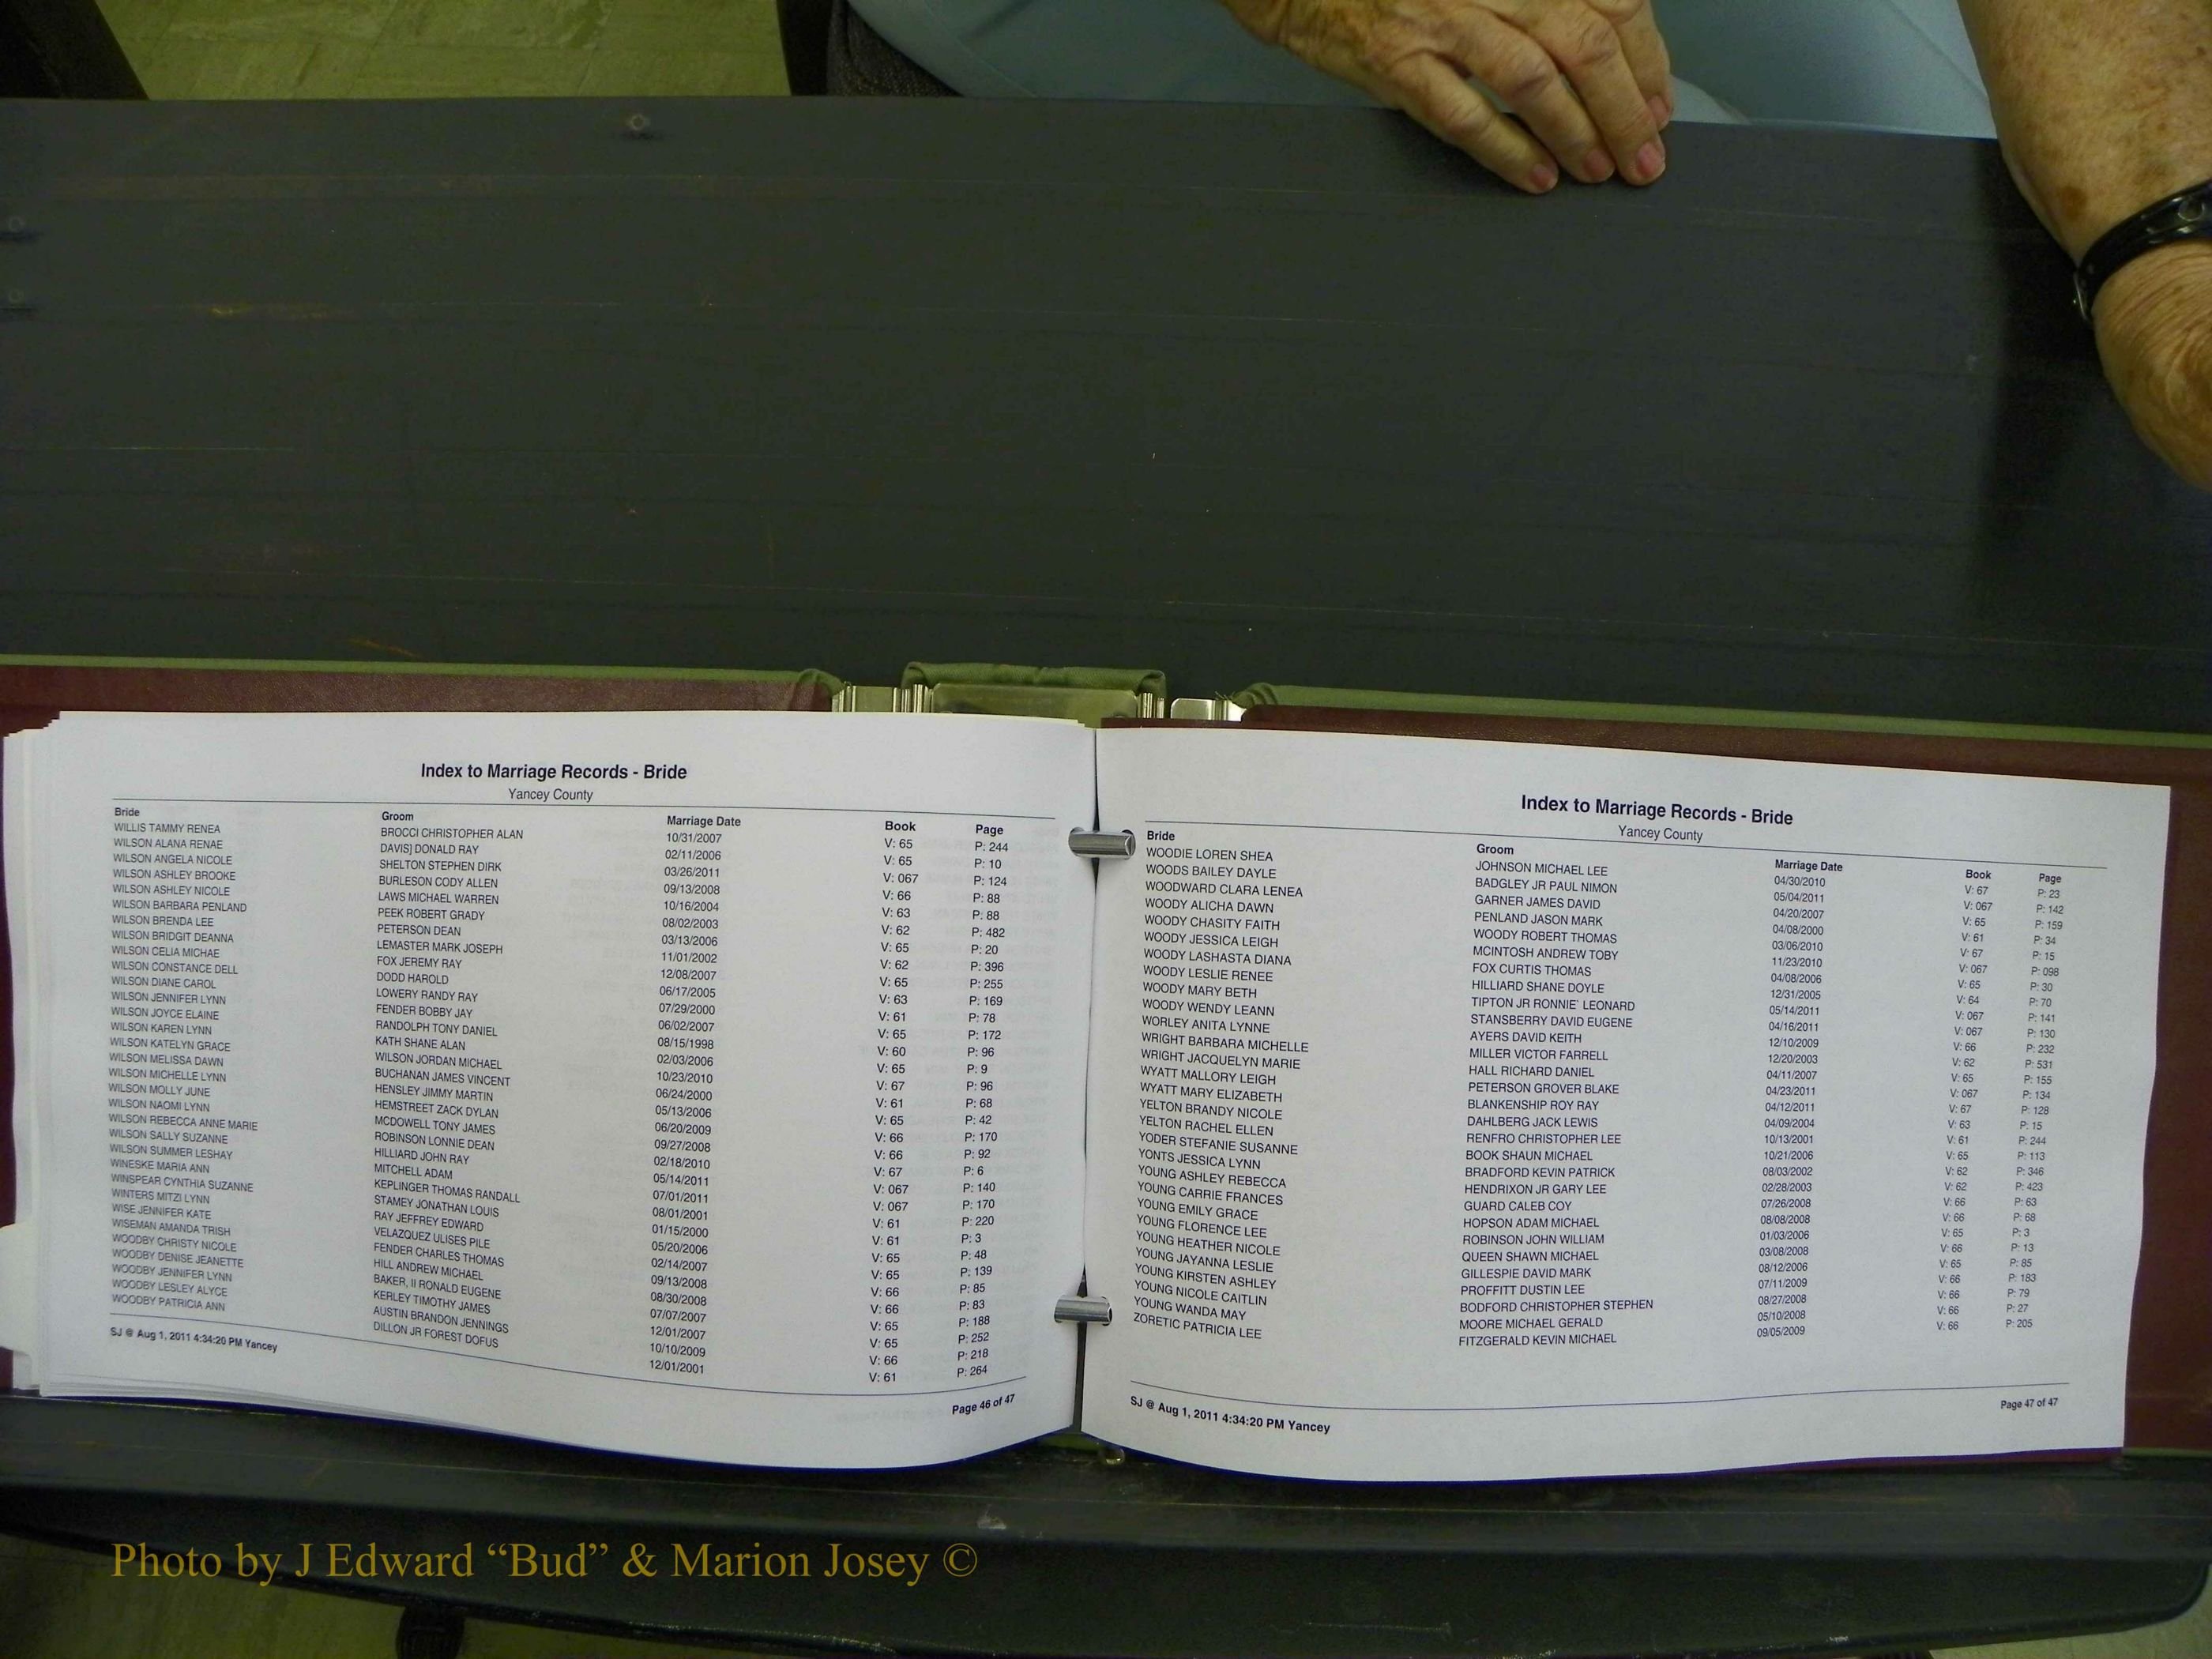 Index to Marriage Records - Bride
Yancey County
Bride Groom Marriage Date Book Page
WILLIS TAMMY RENEA BROCCI CHRISTOPHER ALAN 10/31/2007 V: 65 P: 244
WILSON ALANA RENAE DAVIS] DONALD RAY 02/11/2006 V: 65 P: 10
WILSON ANGELA NICOLE SHELTON STEPHEN DIRK 03/26/2011 V: 067 P: 124
WILSON ASHLEY BROOKE BURLESON CODY ALLEN 09/13/2008 V: 66 P: 88
WILSON ASHLEY NICOLE LAWS MICHAEL WARREN 10/16/2004 V: 63 P: 88
WILSON BARBARA PENLAND PEEK ROBERT GRADY 08/02/2003 V: 62 P: 482
WILSON BRENDA LEE PETERSON DEAN 03/13/2006 V: 65 P: 20
WILSON BRIDGIT DEANNA LEMASTER MARK JOSEPH 11/01/2002 V: 62 P: 396
WILSON CELIA MICHAE FOX JEREMY RAY 12/08/2007 V: 65 P: 255
WILSON CONSTANCE DELL DODD HAROLD 06/17/2005 V: 63 P: 169
WILSON DIANE CAROL LOWERY RANDY RAY 07/29/2000 V: 61 P: 78
WILSON JENNIFER LYNN FENDER BOBBY JAY 06/02/2007 V: 65 P: 172
WILSON JOYCE ELAINE RANDOLPH TONY DANIEL 08/15/1998 V: 60 P: 96
WILSON KAREN LYNN KATH SHANE ALAN 02/03/2006 V: 65 P: 9
WILSON KATELYN GRACE WILSON JORDAN MICHAEL 10/23/2010 V: 67 P: 96
WILSON MELISSA DAWN BUCHANAN JAMES VINCENT 06/24/2000 V: 61 P: 68
WILSON MICHELLE LYNN HENSLEY JIMMY MARTIN 05/13/2006 V: 65 P: 42
WILSON MOLLY JUNE HEMSTREET ZACK DYLAN 06/20/2009 V: 66 P: 170
WILSON NAOMI LYNN MCDOWELL TONY JAMES 09/27/2008 V: 66 P: 92
WILSON REBECCA ANNE MARIE ROBINSON LONNIE DEAN 02/18/2010 V: 67 P: 6
WILSON SALLY SUZANNE HILLIARD JOHN RAY 05/14/2011 V: 067 P: 140
WILSON SUMMER LESHAY MITCHELL ADAM 07/01/2011 V: 067 P: 170
WINESKE MARIA ANN KEPLINGER THOMAS RANDALL 08/01/2001 V: 61 P: 220
WINSPEAR CYNTHIA SUZANNE STAMEY JONATHAN LOUIS 01/15/2000 V: 61 P: 3
WINTERS MITZI LYNN RAY JEFFREY EDWARD 05/20/2006 V: 65 P: 48
WISE JENNIFER KATE VELAZQUEZ ULISES PILE 02/14/2007 V: 65 P: 139
WISEMAN AMANDA TRISH FENDER CHARLES THOMAS 09/13/2008 V: 66 P: 85
WOODBY CHRISTY NICOLE HILL ANDREW MICHAEL 08/30/2008 V: 66 P: 83
WOODBY DENISE JEANETTE BAKER, II RONALD EUGENE 07/07/2007 V: 65 P: 188
WOODBY JENNIFER LYNN KERLEY TIMOTHY JAMES 12/01/2007 V: 65 P: 252
WOODBY LESLEY ALYCE AUSTIN BRANDON JENNINGS 10/10/2009 V: 66 P: 218
WOODBY PATRICIA ANN DILLON JR FOREST DOFUS 12/01/2001 V: 61 P: 264
SJ @ Aug 1, 2011 4:34:20 PM Yancey Page 46 of 47
Index to Marriage Records - Bride
Yancey County
Bride Groom Marriage Date Book Page
WOODIE LOREN SHEA JOHNSON MICHAEL LEE 04/30/2010 V: 67 P: 23
WOODS BAILEY DAYLE BADGLEY JR PAUL NIMON 05/04/2011 V: 067 P: 142
WOODWARD CLARA LENEA GARNER JAMES DAVID 04/20/2007 V: 65 P: 159
WOODY ALICHA DAWN PENLAND JASON MARK 04/08/2000 V: 61 P: 34
WOODY CHASITY FAITH WOODY ROBERT THOMAS 03/06/2010 V: 67 P: 15
WOODY JESSICA LEIGH MCINTOSH ANDREW TOBY 11/23/2010 V: 067 P: 098
WOODY LASHASTA DIANA FOX CURTIS THOMAS 04/08/2006 V: 65 P: 30
WOODY LESLIE RENEE HILLIARD SHANE DOYLE 12/31/2005 V: 64 P: 70
WOODY MARY BETH TIPTON JR RONNIE` LEONARD 05/14/2011 V: 067 P: 141
WOODY WENDY LEANN STANSBERRY DAVID EUGENE 04/16/2011 V: 067 P: 130
WORLEY ANITA LYNNE AYERS DAVID KEITH 12/10/2009 V: 66 P: 232
WRIGHT BARBARA MICHELLE MILLER VICTOR FARRELL 12/20/2003 V: 62 P: 531
WRIGHT JACQUELYN MARIE HALL RICHARD DANIEL 04/11/2007 V: 65 P: 155
WYATT MALLORY LEIGH PETERSON GROVER BLAKE 04/23/2011 V: 067 P: 134
WYATT MARY ELIZABETH BLANKENSHIP ROY RAY 04/12/2011 V: 67 P: 128
YELTON BRANDY NICOLE DAHLBERG JACK LEWIS 04/09/2004 V: 63 P: 15
YELTON RACHEL ELLEN RENFRO CHRISTOPHER LEE 10/13/2001 V: 61 P: 244
YODER STEFANIE SUSANNE BOOK SHAUN MICHAEL 10/21/2006 V: 65 P: 113
YONTS JESSICA LYNN BRADFORD KEVIN PATRICK 08/03/2002 V: 62 P: 346
YOUNG ASHLEY REBECCA HENDRIXON JR GARY LEE 02/28/2003 V: 62 P: 423
YOUNG CARRIE FRANCES GUARD CALEB COY 07/26/2008 V: 66 P: 63
YOUNG EMILY GRACE HOPSON ADAM MICHAEL 08/08/2008 V: 66 P: 68
YOUNG FLORENCE LEE ROBINSON JOHN WILLIAM 01/03/2006 V: 65 P: 3
YOUNG HEATHER NICOLE QUEEN SHAWN MICHAEL 03/08/2008 V: 66 P: 13
YOUNG JAYANNA LESLIE GILLESPIE DAVID MARK 08/12/2006 V: 65 P: 85
YOUNG KIRSTEN ASHLEY PROFFITT DUSTIN LEE 07/11/2009 V: 66 P: 183
YOUNG NICOLE CAITLIN BODFORD CHRISTOPHER STEPHEN 08/27/2008 V: 66 P: 79
YOUNG WANDA MAY MOORE MICHAEL GERALD 05/10/2008 V: 66 P: 27
ZORETIC PATRICIA LEE FITZGERALD KEVIN MICHAEL 09/05/2009 V: 66 P: 205
SJ @ Aug 1, 2011 4:34:20 PM Yancey Page 47 of 47
Photo by J Edward “Bud” & Marion Josey ©